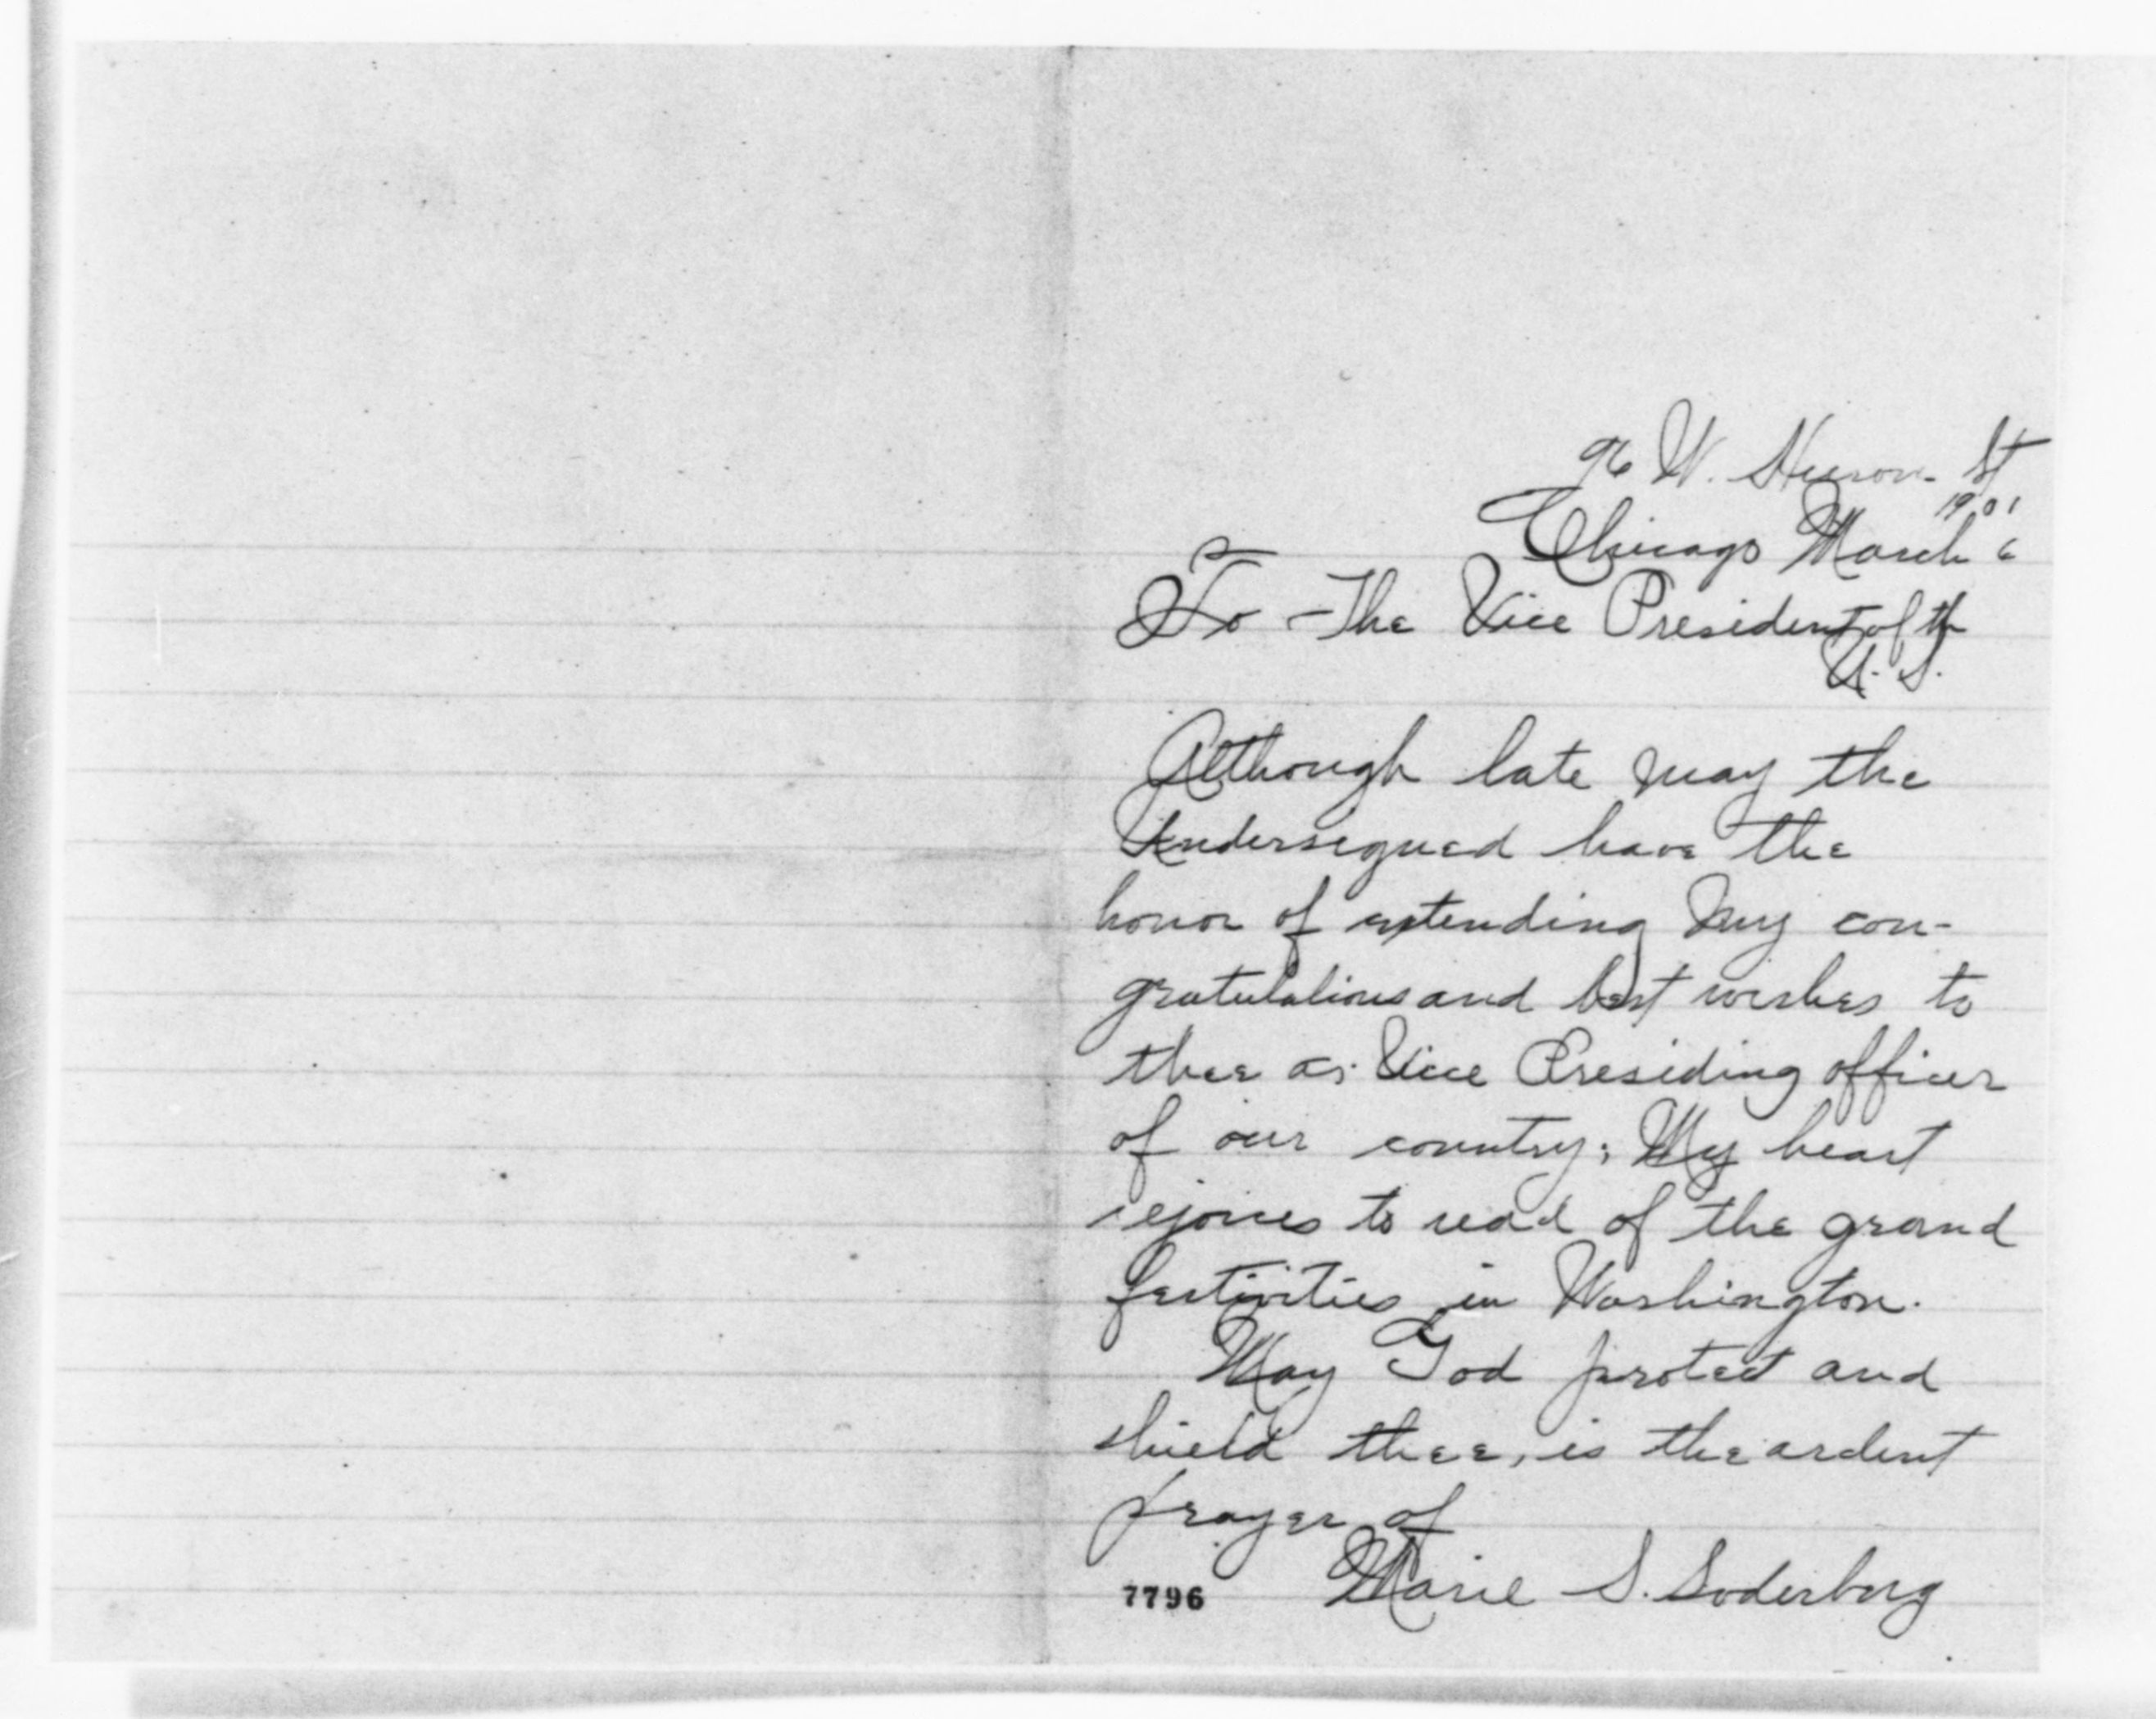 96 W. Huron St
1901
Chicago March 6
To The Vice President of th
U. S.
Although late may the
Undersigned have the
honor of extending my con-
gratulations and best wishes to
thee as Vice Presiding officer
of our country; My heart
rejoices to read of the grand
festivities in Washington.
May God protect and
shield thee, is the ardent
prayer of
Marie S. Soderberg
7796